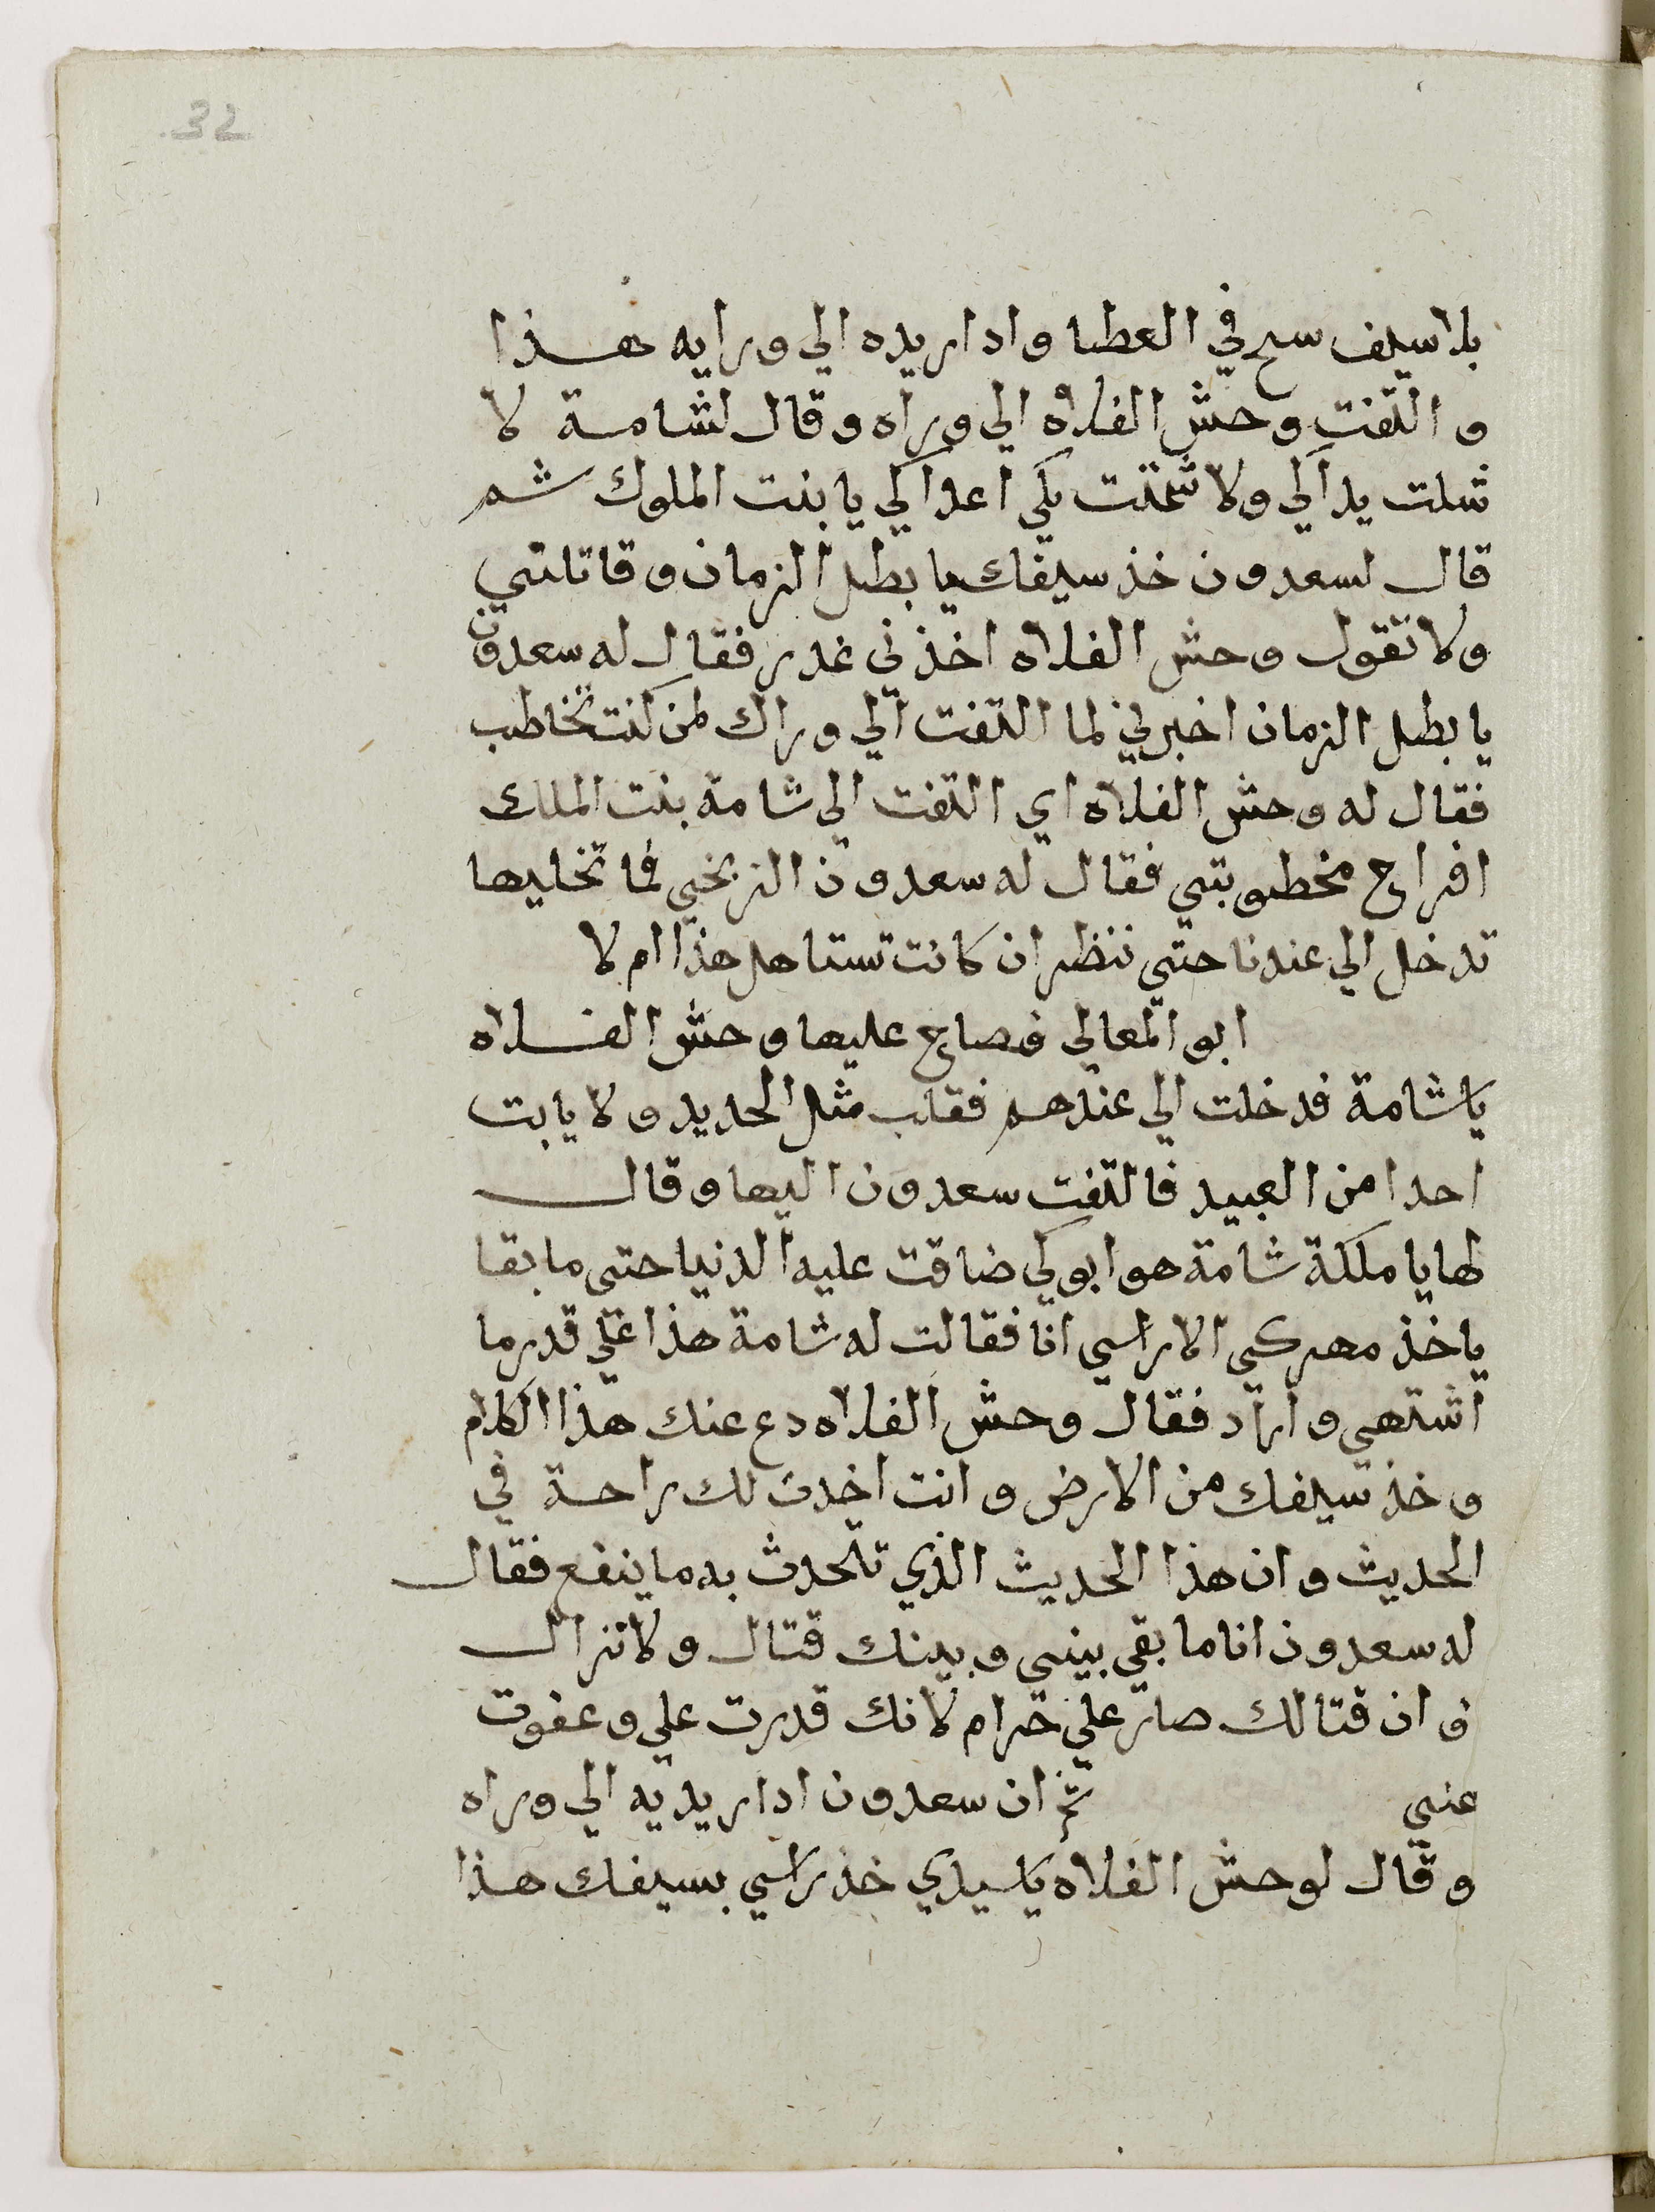 32
بلا سيف سرح في العطا وادار يده الي ورايه هذا
والتفت وحش الفلاه الي وراه وقال لشامة لا
شلت يداكي ولا شمتت بكي اعداكي يا بنت الملوك ثم
قال لسعدون خذ سيفك يا بطل الزمان وقاتلني
ولا تقول وحش الفلاه اخذني غدر فقال له سعدون
يا بطل الزمان اخبرني لما التفت الي وراك لمن كنت تخاطب
فقال له وحش الفلاه اي التفت الي شامة بنت الملك
افراح مخطوبتي فقال له سعدون الزنجي فما تخليها
تدخل الي عندنا حتي ننظر ان كانت تستاهل هذا ام لا
ابو المعالي فصاح عليها وحش الفلاه
يا شامة فدخلت الي عندهم فقلب مثل الحديد ولا يابت
احدا من العبيد فالتفت سعدون اليها وقال
لها يا ملكة شامة هو ابوكي ضاقت عليه الدنيا حتي ما بقا
ياخذ مهركي الا راسي انا فقالت له شامة هذا علي قدر ما
اشتهي واراد فقال وحش الفلاه دع عنك هذا الكلام
وخذ سيفك من الارض وانت اخدت لك راحة في
الحديث وان هذا الحديث الذي تتحدث به ما ينفع فقال
له سعدون انا ما بقي بيني وبينك قتال ولا نزال
وان قتالك صار علي حرام لانك قدرت علي وعفوت
عني ثم ان سعدون ادار يديه الي وراه
وقال لوحش الفلاه يا سيدي خذ راسي بسيفك هذا